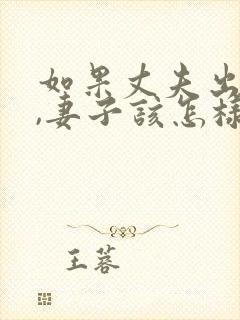 如果丈夫出
,妻子该怎样
王蓉